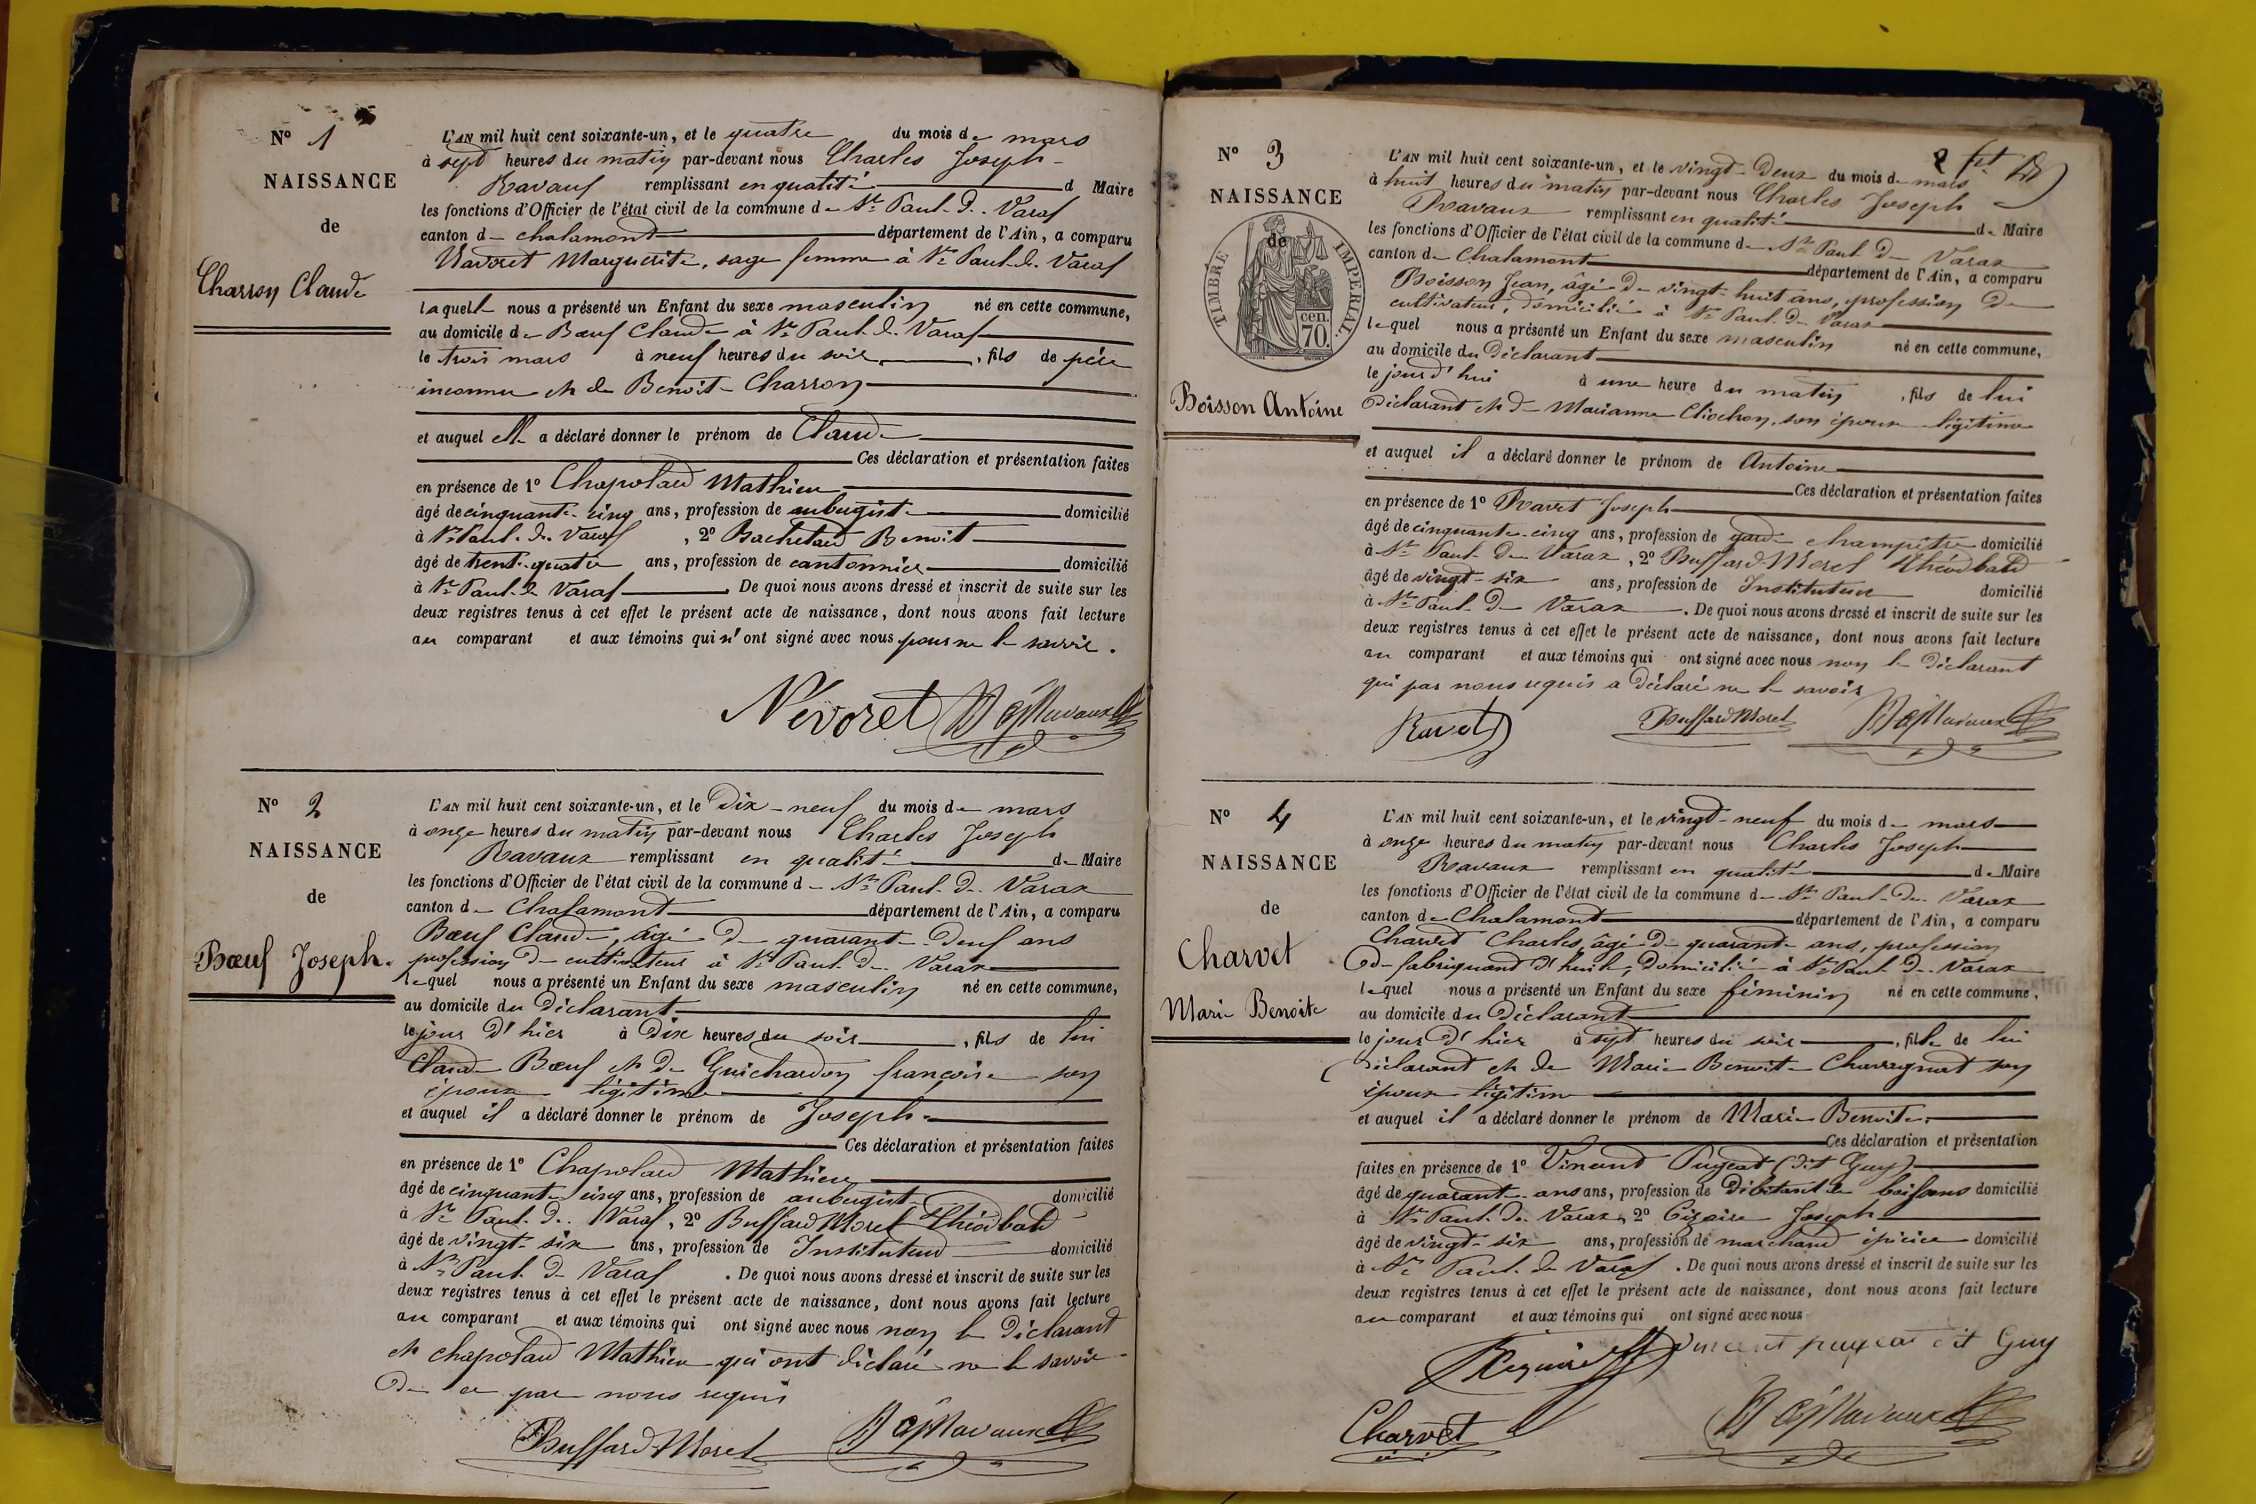 N° 1
NAISSANCE
de
Charron Claude
L'AN mil huit cent soixante-un, et le quatre du mois de mars
à sept heures du matin par-devant nous Charles Joseph
Ravaux remplissant en qualité de Maire
les fonctions d'Officier de l'état civil de la commune de St Paul de Varax
canton de Chalamont département de l'Ain, a comparu
Marguerite, sage femme à St Paul de Varax
laquelle nous a présenté un Enfant du sexe masculin né en cette commune,
au domicile de Bœuf Claude à St Paul de Varax
le trois mars à neuf heures du soir, fils de père
inconnu et de Benoite Charron
et auquel elle a déclaré donner le prénom de Claude
Ces déclaration et présentation faites
en présence de 1° Chapolard Mathieu
âgé de cinquante-cinq ans, profession de aubergiste domicilié
à St Paul de Varax, 2° Bachelard Benoit
âgé de trente-quatre ans, profession de cantonnier domicilié
à St Paul de Varax. De quoi nous avons dressé et inscrit de suite sur les
deux registres tenus à cet effet le présent acte de naissance, dont nous avons fait lecture
au comparant et aux témoins qui n'ont signé avec nous pour ne le savoir.
Névoret Ravaux
N° 2
NAISSANCE
de
Bœuf Joseph
L'AN mil huit cent soixante-un, et le Dix-neuf du mois de mars
à onze heures du matin par-devant nous Charles Joseph
Ravaux remplissant en qualité de Maire
les fonctions d'Officier de l'état civil de la commune de St Paul de Varax
canton de Chalamont département de l'Ain, a comparu
Bœuf Claude, âgé de quarante-deux ans
profession de cultivateur à St Paul de Varax
lequel nous a présenté un Enfant du sexe masculin né en cette commune,
au domicile du Déclarant
le jour d'hier à Dix heures du soir, fils de lui
Claude Bœuf et de Guichardon françoise son
épouse légitime
et auquel il a déclaré donner le prénom de Joseph
Ces déclaration et présentation faites
en présence de 1° Chapolard Mathieu
âgé de cinquante-cinq ans, profession de aubergiste domicilié
à St Paul de Varax, 2° Buffard Morel Théodbald
âgé de vingt-six ans, profession de Instituteur domicilié
à St Paul de Varax. De quoi nous avons dressé et inscrit de suite sur les
deux registres tenus à cet effet le présent acte de naissance, dont nous avons fait lecture
au comparant et aux témoins qui ont signé avec nous non le Déclarant
et chapolard Mathieu qui ont déclaré ne le savoir
de ce par nous requis
Buffard Morel Ravaux
N° 3
NAISSANCE
de
TIMBRE IMPERIAL.
cen.
70.
Boisson Antoine
L'AN mil huit cent soixante-un, et le vingt-Deux du mois de mars
à huit heures du matin par-devant nous Charles Joseph
Ravaux remplissant en qualité de Maire
les fonctions d'Officier de l'état civil de la commune de St Paul de Varax
canton de Chalamont département de l'Ain, a comparu
Boisson Jean, âgé de vingt-huit ans, profession de
cultivateur, domicilié à St Paul de Varax
lequel nous a présenté un Enfant du sexe masculin né en cette commune,
au domicile du Déclarant
le jourd'hui à une heure du matin, fils de lui
Déclarant et de Marianne Cliochon, son épouse légitime
et auquel il a déclaré donner le prénom de Antoine
Ces déclaration et présentation faites
en présence de 1° Ravet Joseph
âgé de cinquante-cinq ans, profession de garde champêtre domicilié
à St Paul de Varax, 2° Buffard Morel Théodbald
âgé de vingt-six ans, profession de Instituteur domicilié
à St Paul de Varax. De quoi nous avons dressé et inscrit de suite sur les
deux registres tenus à cet effet le présent acte de naissance, dont nous avons fait lecture
au comparant et aux témoins qui ont signé avec nous non le Déclarant
qui par nous requis a déclaré ne le savoir
Ravet Buffard Morel Ravaux
N° 4
NAISSANCE
de
Charvet
Marie Benoite
L'AN mil huit cent soixante-un, et le vingt-neuf du mois de mars
à onze heures du matin par-devant nous Charles Joseph
Ravaux remplissant en qualité de Maire
les fonctions d'Officier de l'état civil de la commune de St Paul de Varax
canton de Chalamont département de l'Ain, a comparu
Charvet Charles, âgé de quarante ans, profession
de fabriquant d'huile, domicilié à St Paul de Varax
lequel nous a présenté un Enfant du sexe féminin né en cette commune,
au domicile du Déclarant
le jour d'hier à sept heures du soir, fille de lui
Déclarant et de Marie Benoite Chavagnat son
épouse légitime
et auquel il a déclaré donner le prénom de Marie Benoite
Ces déclaration et présentation
faites en présence de 1° Vincent Pugeat (dit Guy)
âgé de quarante ans ans, profession de Débitant de boissons domicilié
à St Paul de Varax, 2° Joseph
âgé de vingt-six ans, profession de marchand épicier domicilié
à St Paul de Varax. De quoi nous avons dressé et inscrit de suite sur les
deux registres tenus à cet effet le présent acte de naissance, dont nous avons fait lecture
au comparant et aux témoins qui ont signé avec nous
vincent pugeat dit Guy
Charvet Ravaux